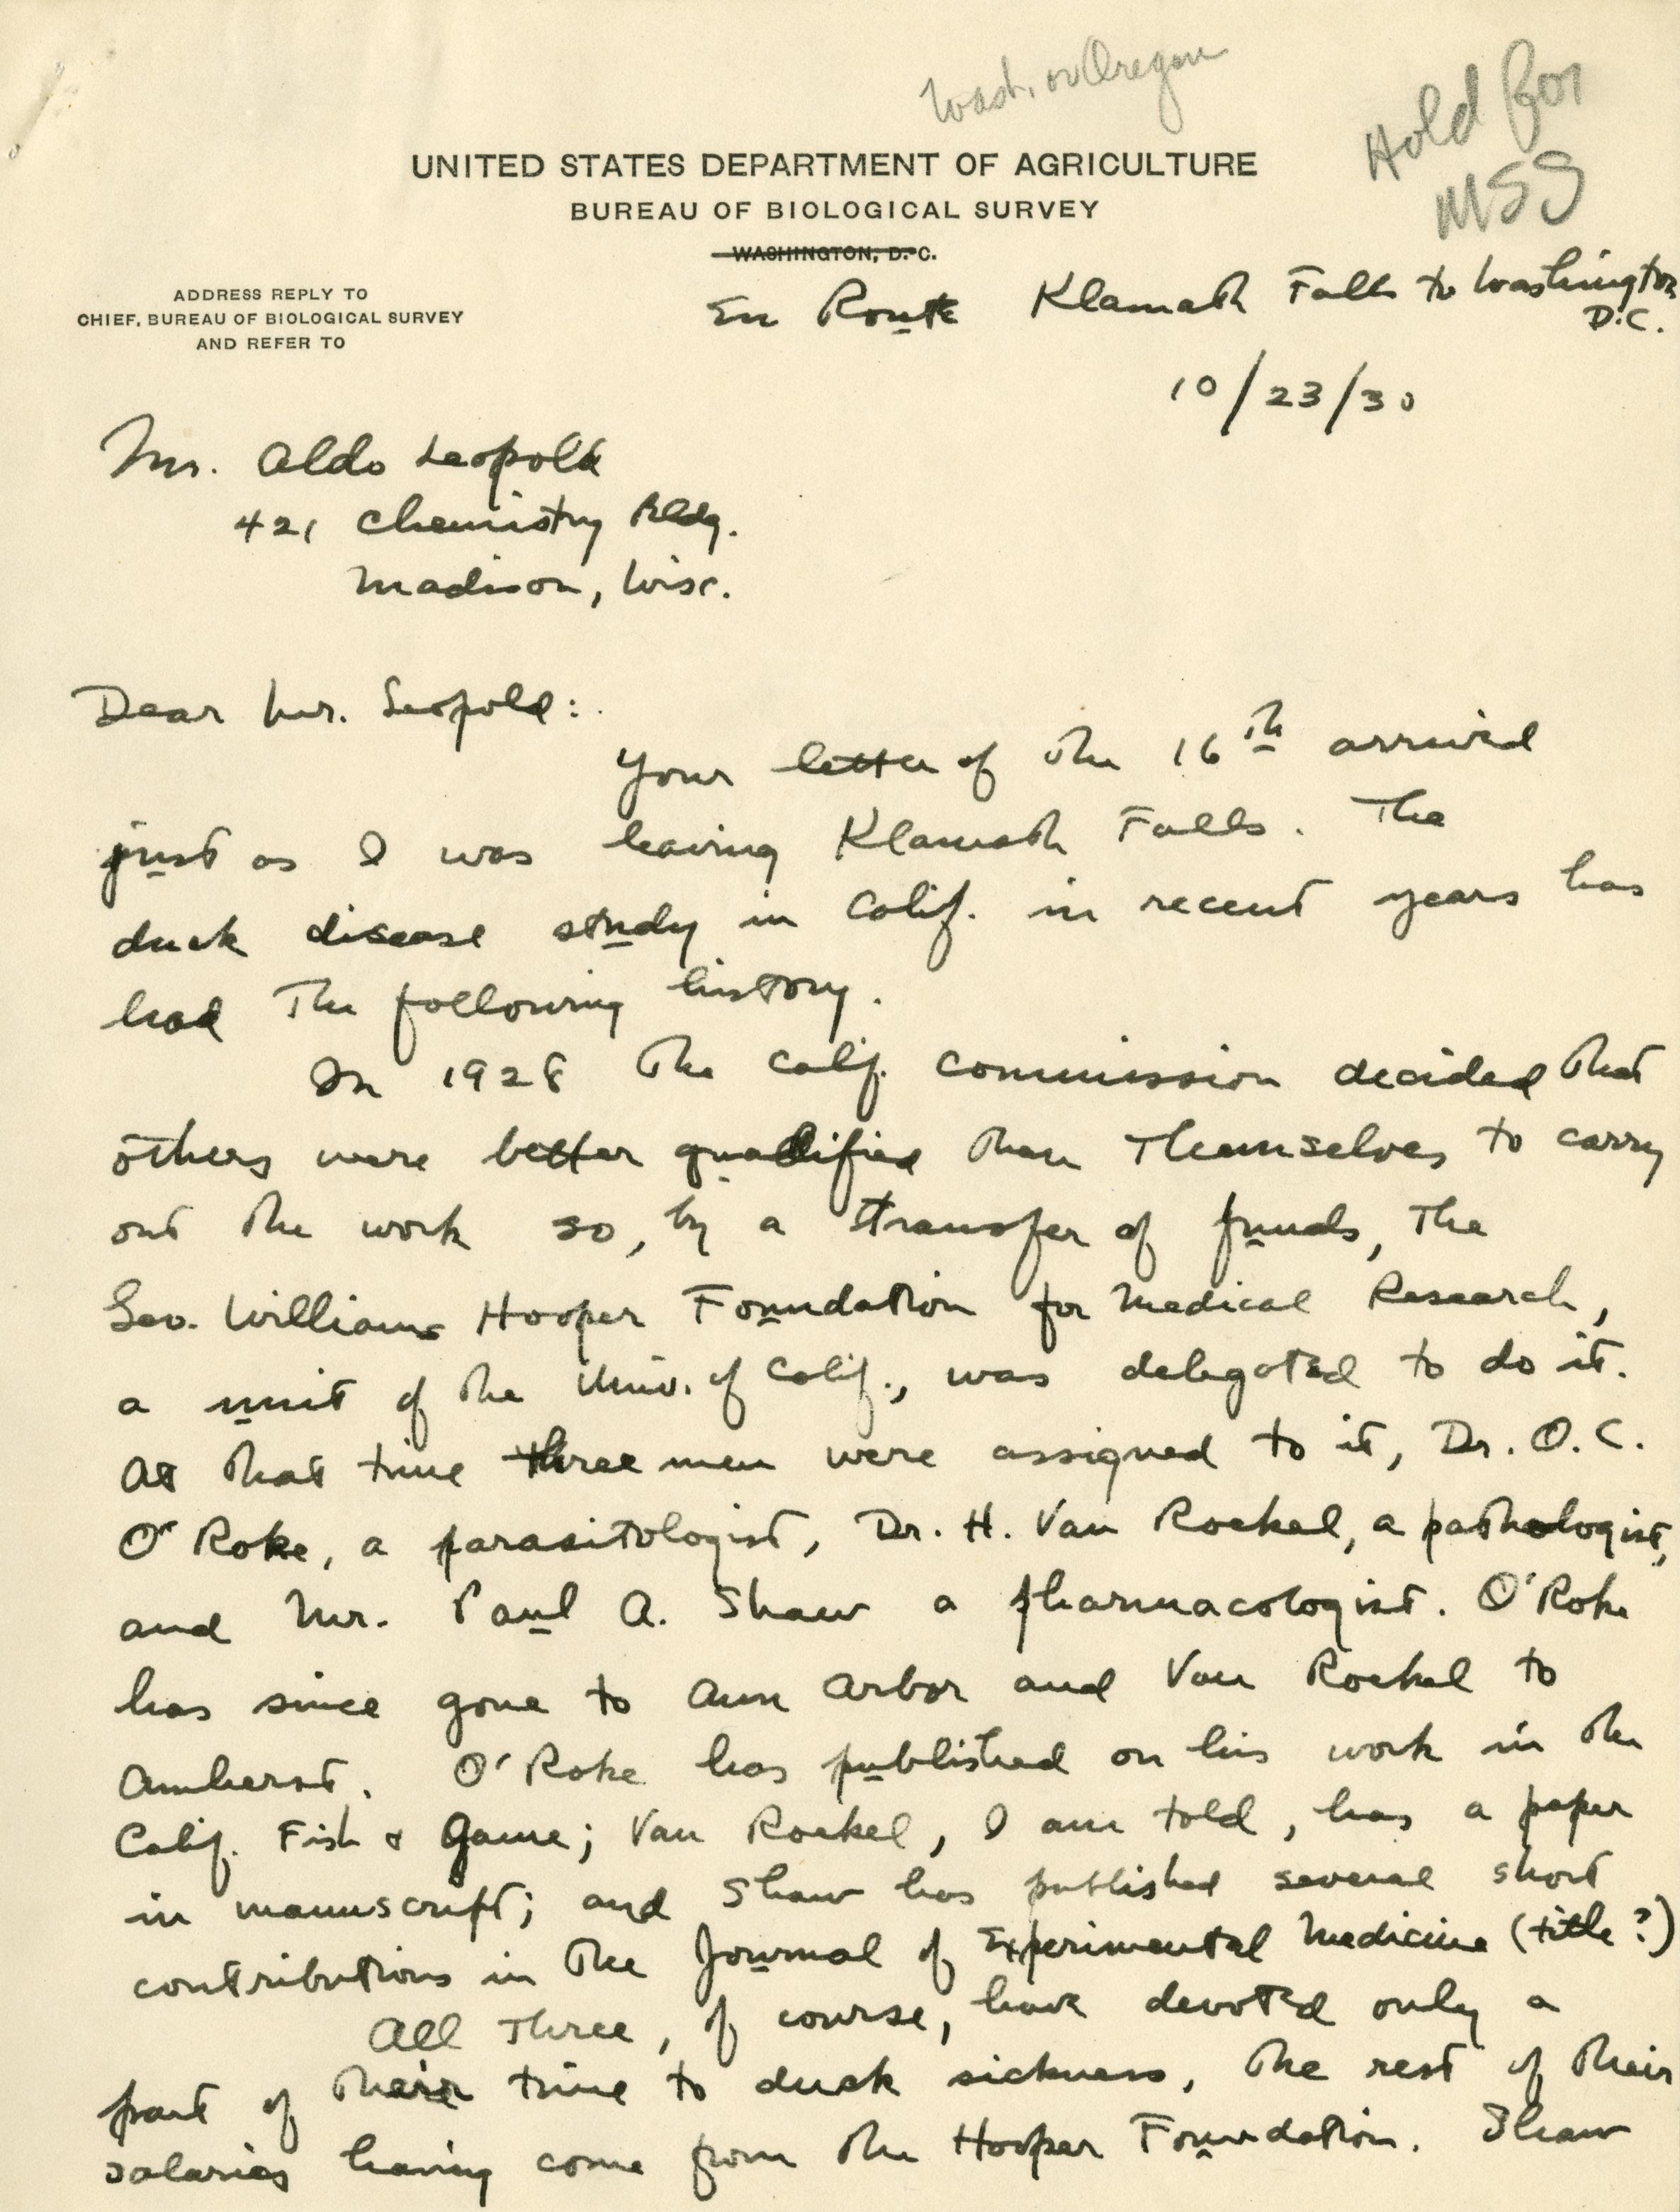 Wash. or Oregon
Hold for
MSS
UNITED STATES DEPARTMENT OF AGRICULTURE
BUREAU OF BIOLOGICAL SURVEY
WASHINGTON, D. C.
ADDRESS REPLY TO
CHIEF, BUREAU OF BIOLOGICAL SURVEY
AND REFER TO
En Route Klamath Falls to Washington
D.C.
10/23/30
Mr. Aldo Leopold
421 Chemistry Bldg.
Madison, Wisc.
Dear Mr. Leopold:
Your letter of the 16th arrived
just as I was leaving Klamath Falls. The
duck disease study in Calif. in recent years has
had the following history.
In 1928 the Calif. commission decided that
others were better qualified than themselves to carry
out the work so, by a transfer of funds, the
Geo. Williams Hooper Foundation for Medical Research,
a unit of the Univ. of Calif., was delegated to do it.
At that time three men were assigned to it, Dr. O. C.
O'Roke, a parasitologist, Dr. H. Van Roekel, a pathologist,
and Mr. Paul A. Shaw a pharmacologist. O'Roke
has since gone to Ann Arbor and Van Roekel to
Amherst. O'Roke has published on his work in the
Calif. Fish & Game; Van Roekel, I am told, has a paper
in manuscript; and Shaw has published several short
contributions in the Journal of Experimental Medicine (title?)
All three, of course, have devoted only a
part of their time to duck sickness, the rest of their
salaries having come from the Hooper Foundation. Shaw